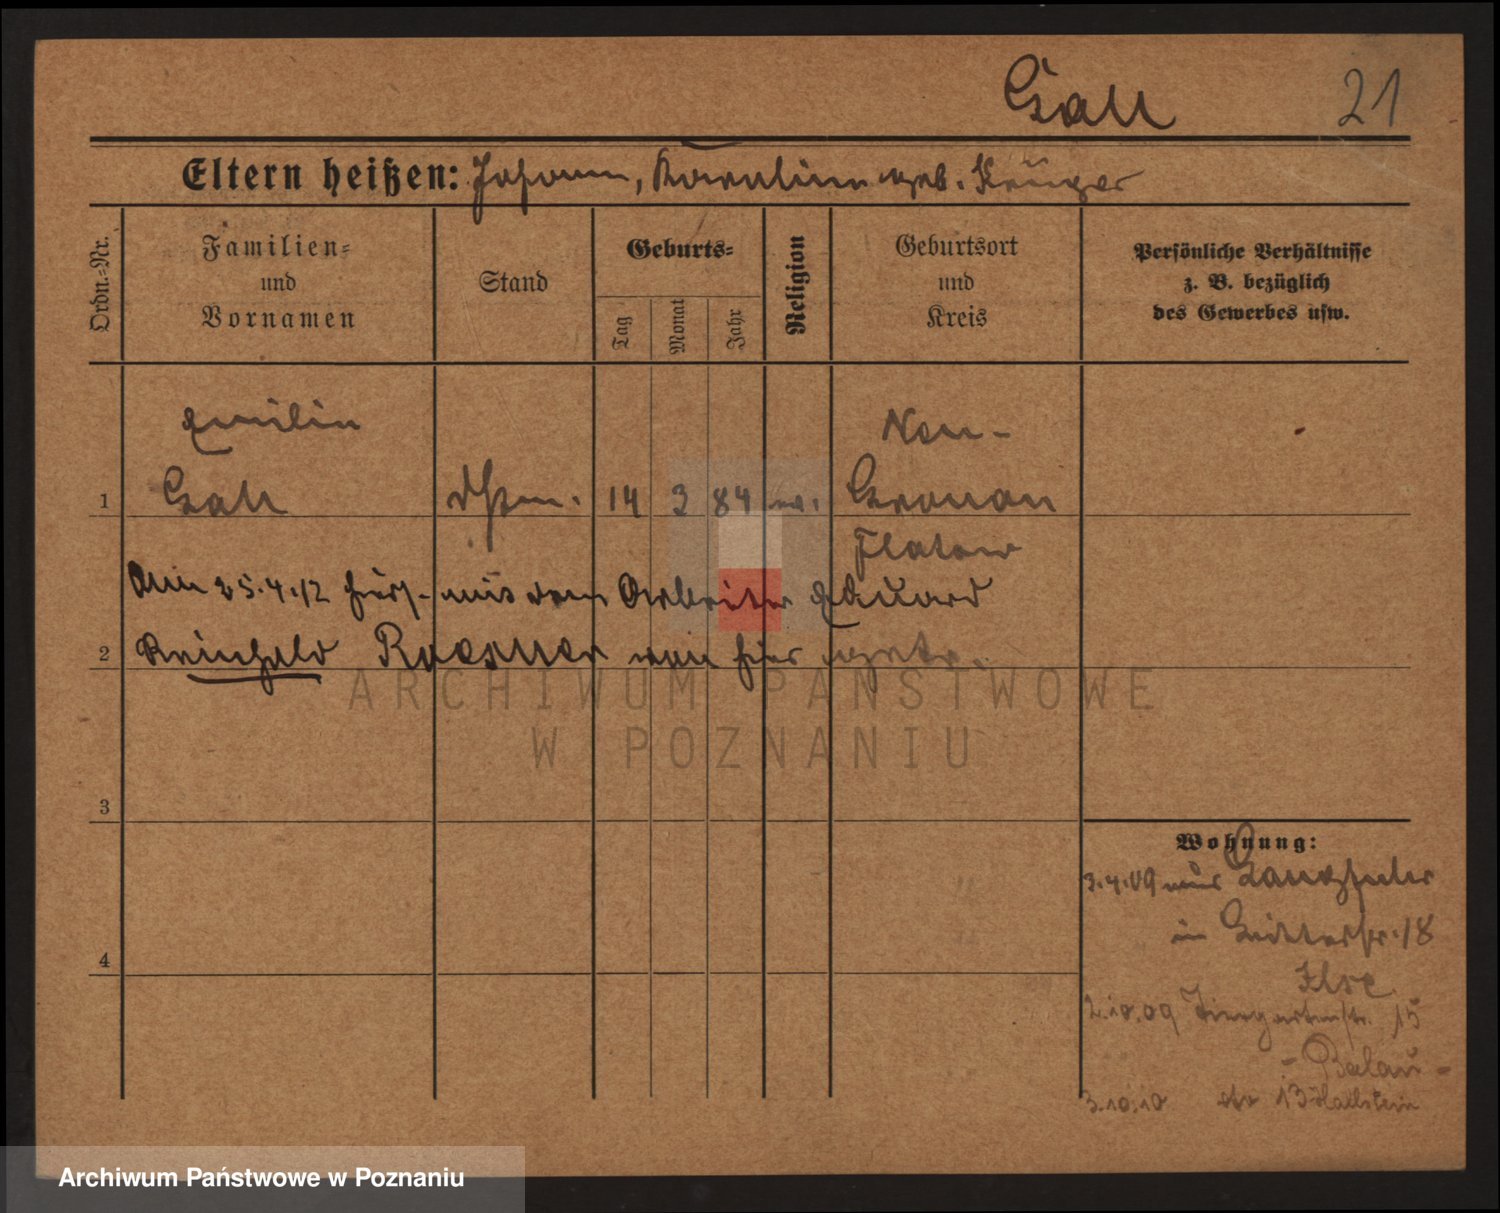 Gall 21
Eltern heißen: Johann, Karoline geb. Krüger
Ordn.-Nr.
Familien-
und
Vornamen
Stand
Geburts-
Tag
Monat
Jahr
Religion
Geburtsort
und
Kreis
Persönliche Verhältnisse
z. B. bezüglich
des Gewerbes usw.
Emilie Neu-
1 Gall 14 3 84 Grunau
Flatow
Am 25.4.12 mit dem Arbeiter Eduard
2 Reinhold von hier getr.
3
4
Wohnung:
3.4.09 aus
in 18
2.10.09 Tiergartenstr. 15
3.10.10 dto 13
ARCHIWUM PAŃSTWOWE
W POZNANIU
Archiwum Państwowe w Poznaniu